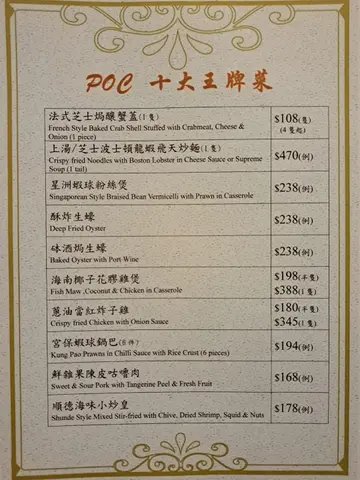 POC 十大王牌菜
法式芝士焗釀蟹蓋(1隻)
French Style Baked Crab Shell Stuffed with Crabmeat, Cheese &
Onion (1 piece)
$108(隻)
(4隻起)
上湯/芝士波士頓龍蝦飛天炒麵(1隻)
Crispy fried Noodles with Boston Lobster in Cheese Sauce or Supreme
Soup (1 tail)
$470(例)
星洲蝦球粉絲煲
Singaporean Style Braised Bean Vermicelli with Prawn in Casserole
$238(例)
酥炸生蠔
Deep Fried Oyster
$238(例)
砵酒焗生蠔
Baked Oyster with Port Wine
$238(例)
海南椰子花膠雞煲
Fish Maw ,Coconut & Chicken in Casserole
$198(半隻)
$388(1隻)
蔥油當紅炸子雞
Crispy fried Chicken with Onion Sauce
$180(半隻)
$345(1隻)
宮保蝦球鍋巴(6件)
Kung Pao Prawns in Chilli Sauce with Rice Crust (6 pieces)
$194(例)
鮮雜果陳皮咕嚕肉
Sweet & Sour Pork with Tangerine Peel & Fresh Fruit
$168(例)
順德海味小炒皇
Shunde Style Mixed Stir-fried with Chive, Dried Shrimp, Squid & Nuts
$178(例)